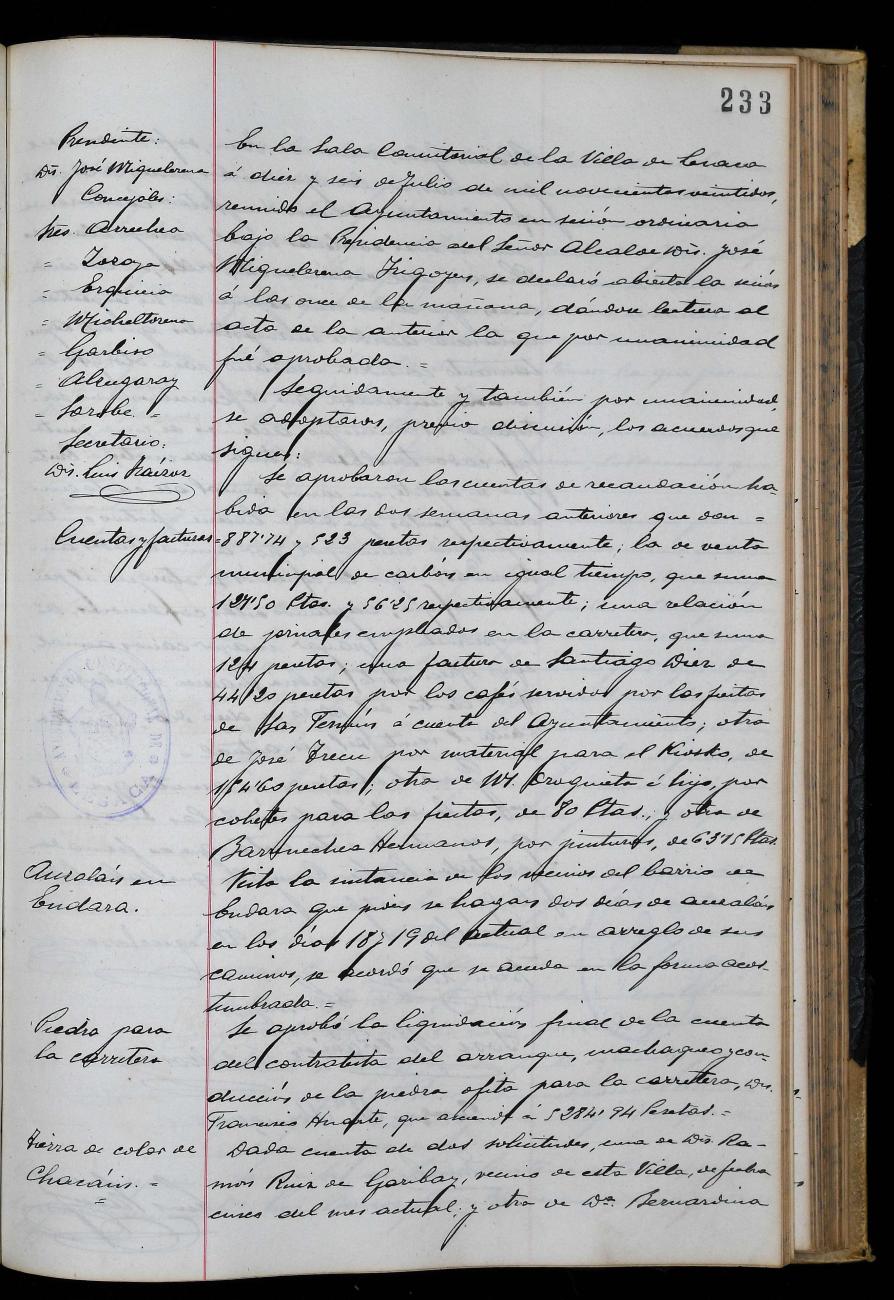 233
Presidente:
Dn. José Miguelerena
Concejales:
Sres. Arrechea
= Zoraja
= Erquicia
= Micheltorena
= Garbiso
= Alzugaray
= Sarobe. =
Secretario:
Dn. Luis
En la Sala Consistorial de la Villa de Lesaca
á diez y seis de Julio de mil novecientos veintidos,
reunido el Ayuntamiento en sesión ordinaria
bajo la Presidencia del Señor Alcalde Dn. José
Miguelerena Irigoyen, se declaró abierta la sesión
á las once de la mañana, dándose lectura al
acta de la anterior la que por unanimidad
fué aprobada. =
Seguidamente y también por unanimidad,
se adoptaron, previa discusión, los acuerdos que
siguen:
Cuentas y facturas
Se aprobaron las cuentas de recaudación ha-
bida en las dos semanas anteriores que dan =
= 887'74 y 523 pesetas respectivamente; la de venta
municipal de carbón en igual tiempo, que suma
127'50 Ptas. y 56'25 respectivamente; una relación
de jornales empleados en la carretera, que suma
124 pesetas; una factura de Santiago Diez de
44'20 pesetas por los cafés servidos por las fiestas
de San Fermín á cuenta del Ayuntamiento; otra
de José Irecu por material para el Kiosko, de
154'60 pesetas; otra de M. Oroquieta é hijo, por
cohetes para las fiestas, de 80 Ptas.; y otra de
Barrenechea Hermanos, por pinturas, de 63'75 Ptas.
Auzolán en
Endara.
Vista la instancia de los vecinos del barrio de
Endara que piden se hagan dos días de auzolán
en los días 18 y 19 del actual en arreglo de sus
caminos, se acordó que se acceda en la forma acos-
tumbrada. =
Piedra para
la carretera
Se aprobó la liquidación final de la cuenta
del contratista del arranque, machaqueo y con-
ducción de la piedra ofita para la carretera, Dn.
Francisco Huarte, que asciende á 5284'94 Pesetas. =
Tierra de color de
Chacáin. =
=
Dada cuenta de dos solicitudes, una de Dn. Ra-
món Ruiz de Garibay, vecino de esta Villa, de fecha
cinco del mes actual; y otra de Dª. Bernardina